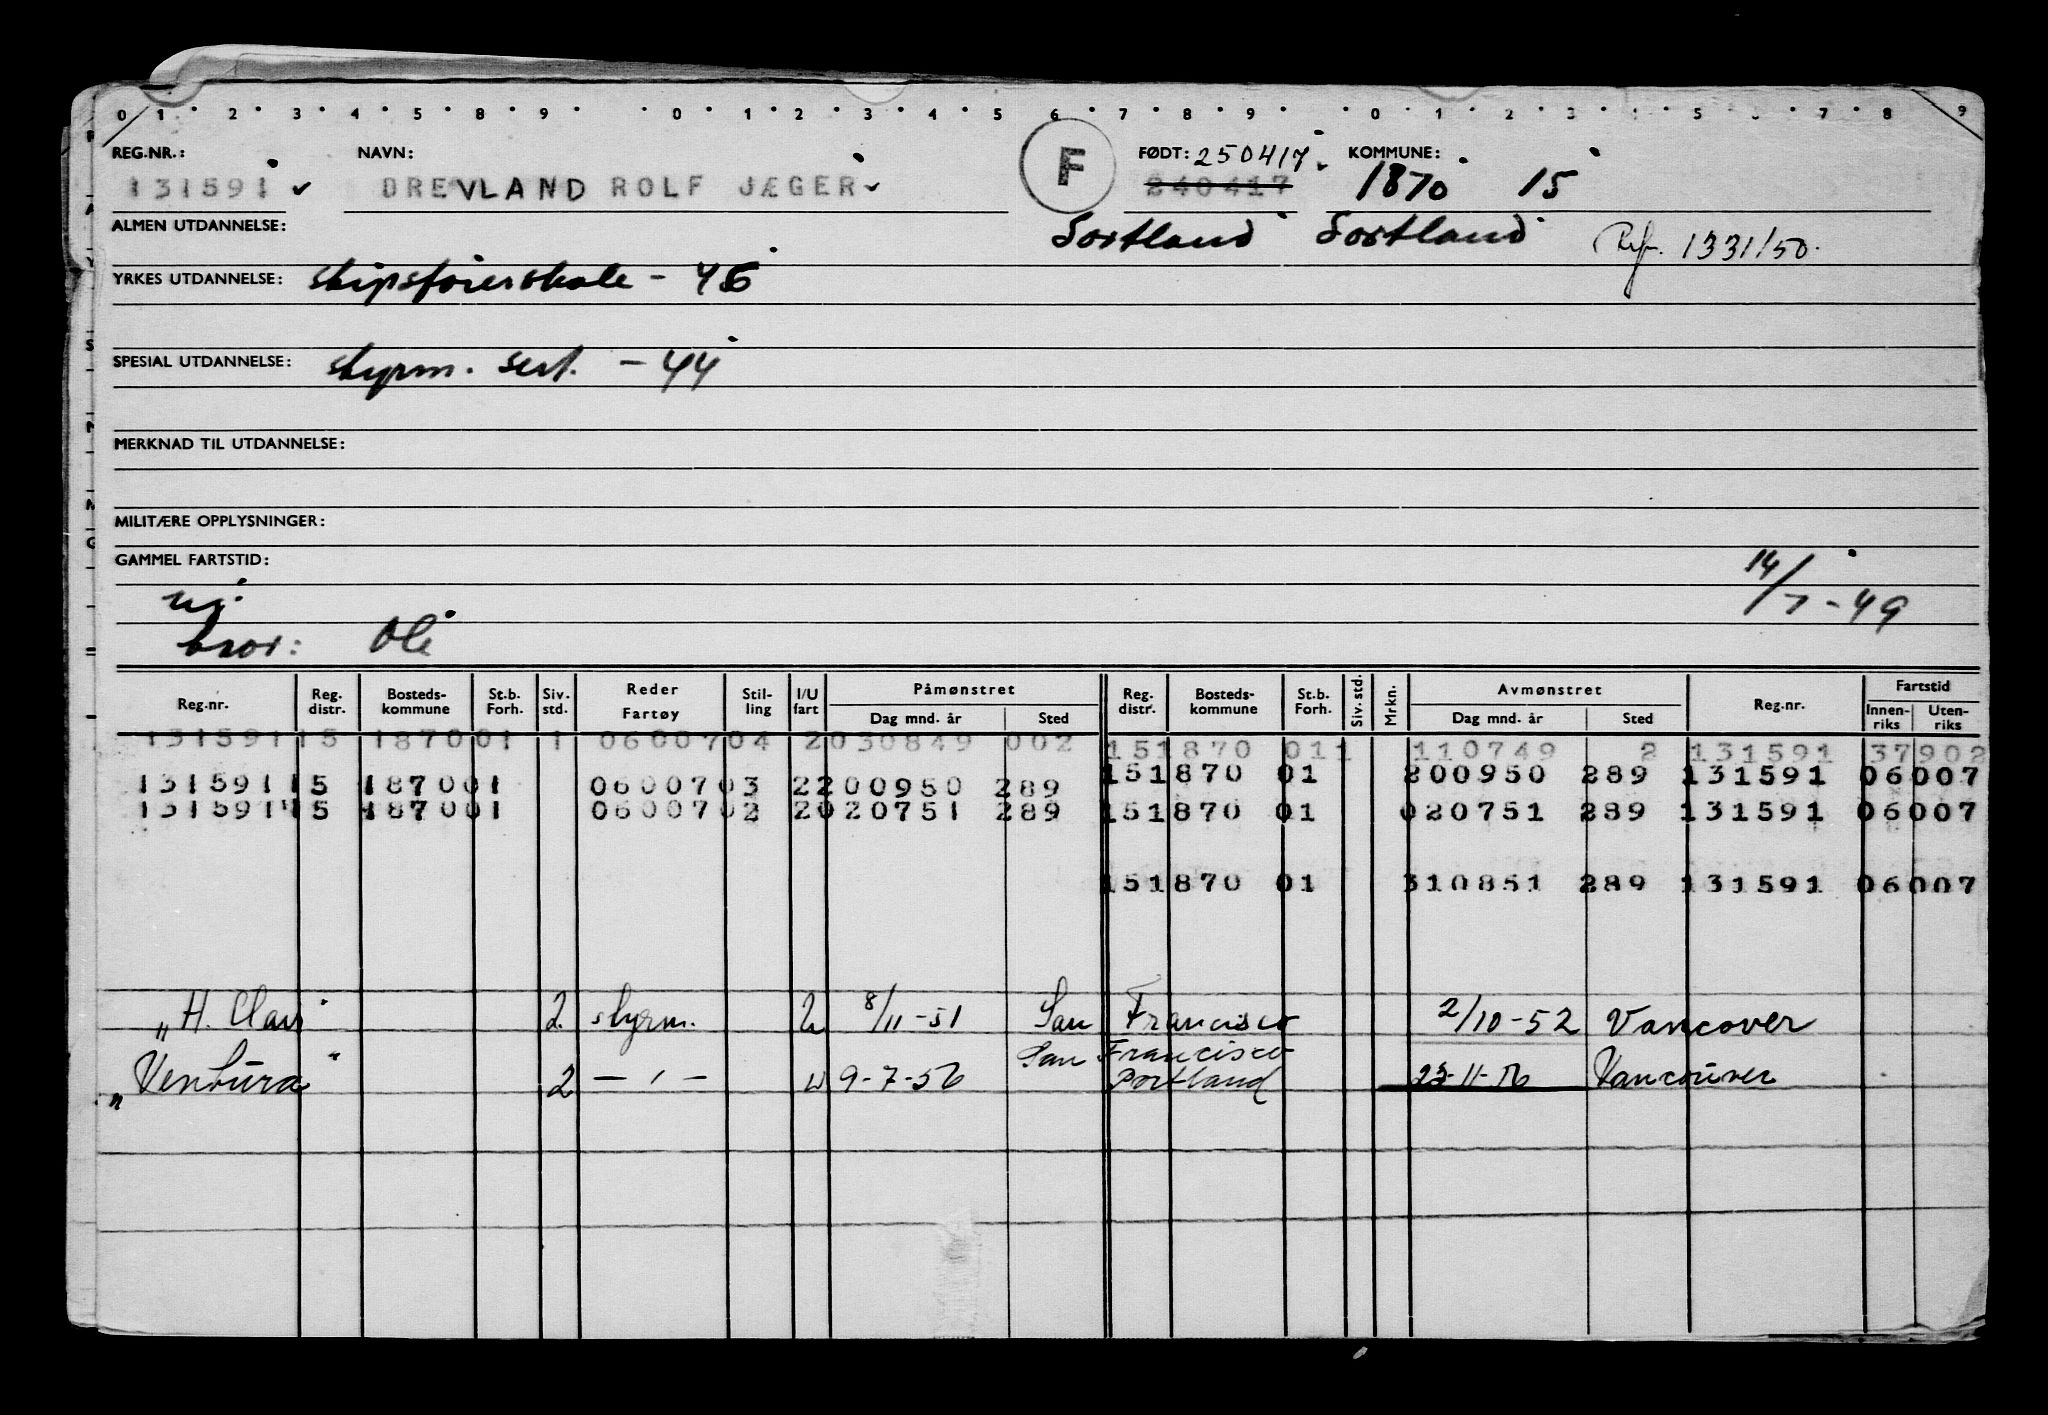 0 1 2 3 4 5 8 9 0 1 2 3 4 5 6 7 8 9 0 1 2 3 4 5 6 7 8 9
REG.NR.: NAVN: F FØDT: 250417 KOMMUNE:
131591 DREVLAND ROLF JÆGER 240417 1870 15
ALMEN UTDANNELSE: Sortland Sortland Ref. 1331/50.
YRKES UTDANNELSE: skipsførerskole - 46
SPESIAL UTDANNELSE: styrm. sert. - 44
MERKNAD TIL UTDANNELSE:
MILITÆRE OPPLYSNINGER:
GAMMEL FARTSTID:
14/7-49
bror: Ole
Reg.nr. Reg. distr. Bosteds-kommune St.b. Forh. Siv. std. Reder Fartøy Stil-ling I/U fart Påmønstret Dag mnd. år Sted Reg. distr. Bosteds-kommune St.b. Forh. Siv. std. Mrkn. Avmønstret Dag mnd. år Sted Reg.nr. Fartstid Innen-riks Uten-riks
131591 15 1870 01 1 060070 04 2 030849 002 15 1870 01 1 110749 2 131591 37902
131591 15 1870 01 060070 03 2 200950 289 15 1870 01 200950 289 131591 06007
131591 15 1870 01 060070 02 2 020751 289 15 1870 01 020751 289 131591 06007
15 1870 01 310851 289 131591 06007
„H. Clau" 2. styrm. U 8/11-51 San Francisco 2/10-52 Vancover
San Francisco
„Ventura" 2 — ' — U 9-7-56 Portland 23-11-56 Vancouver